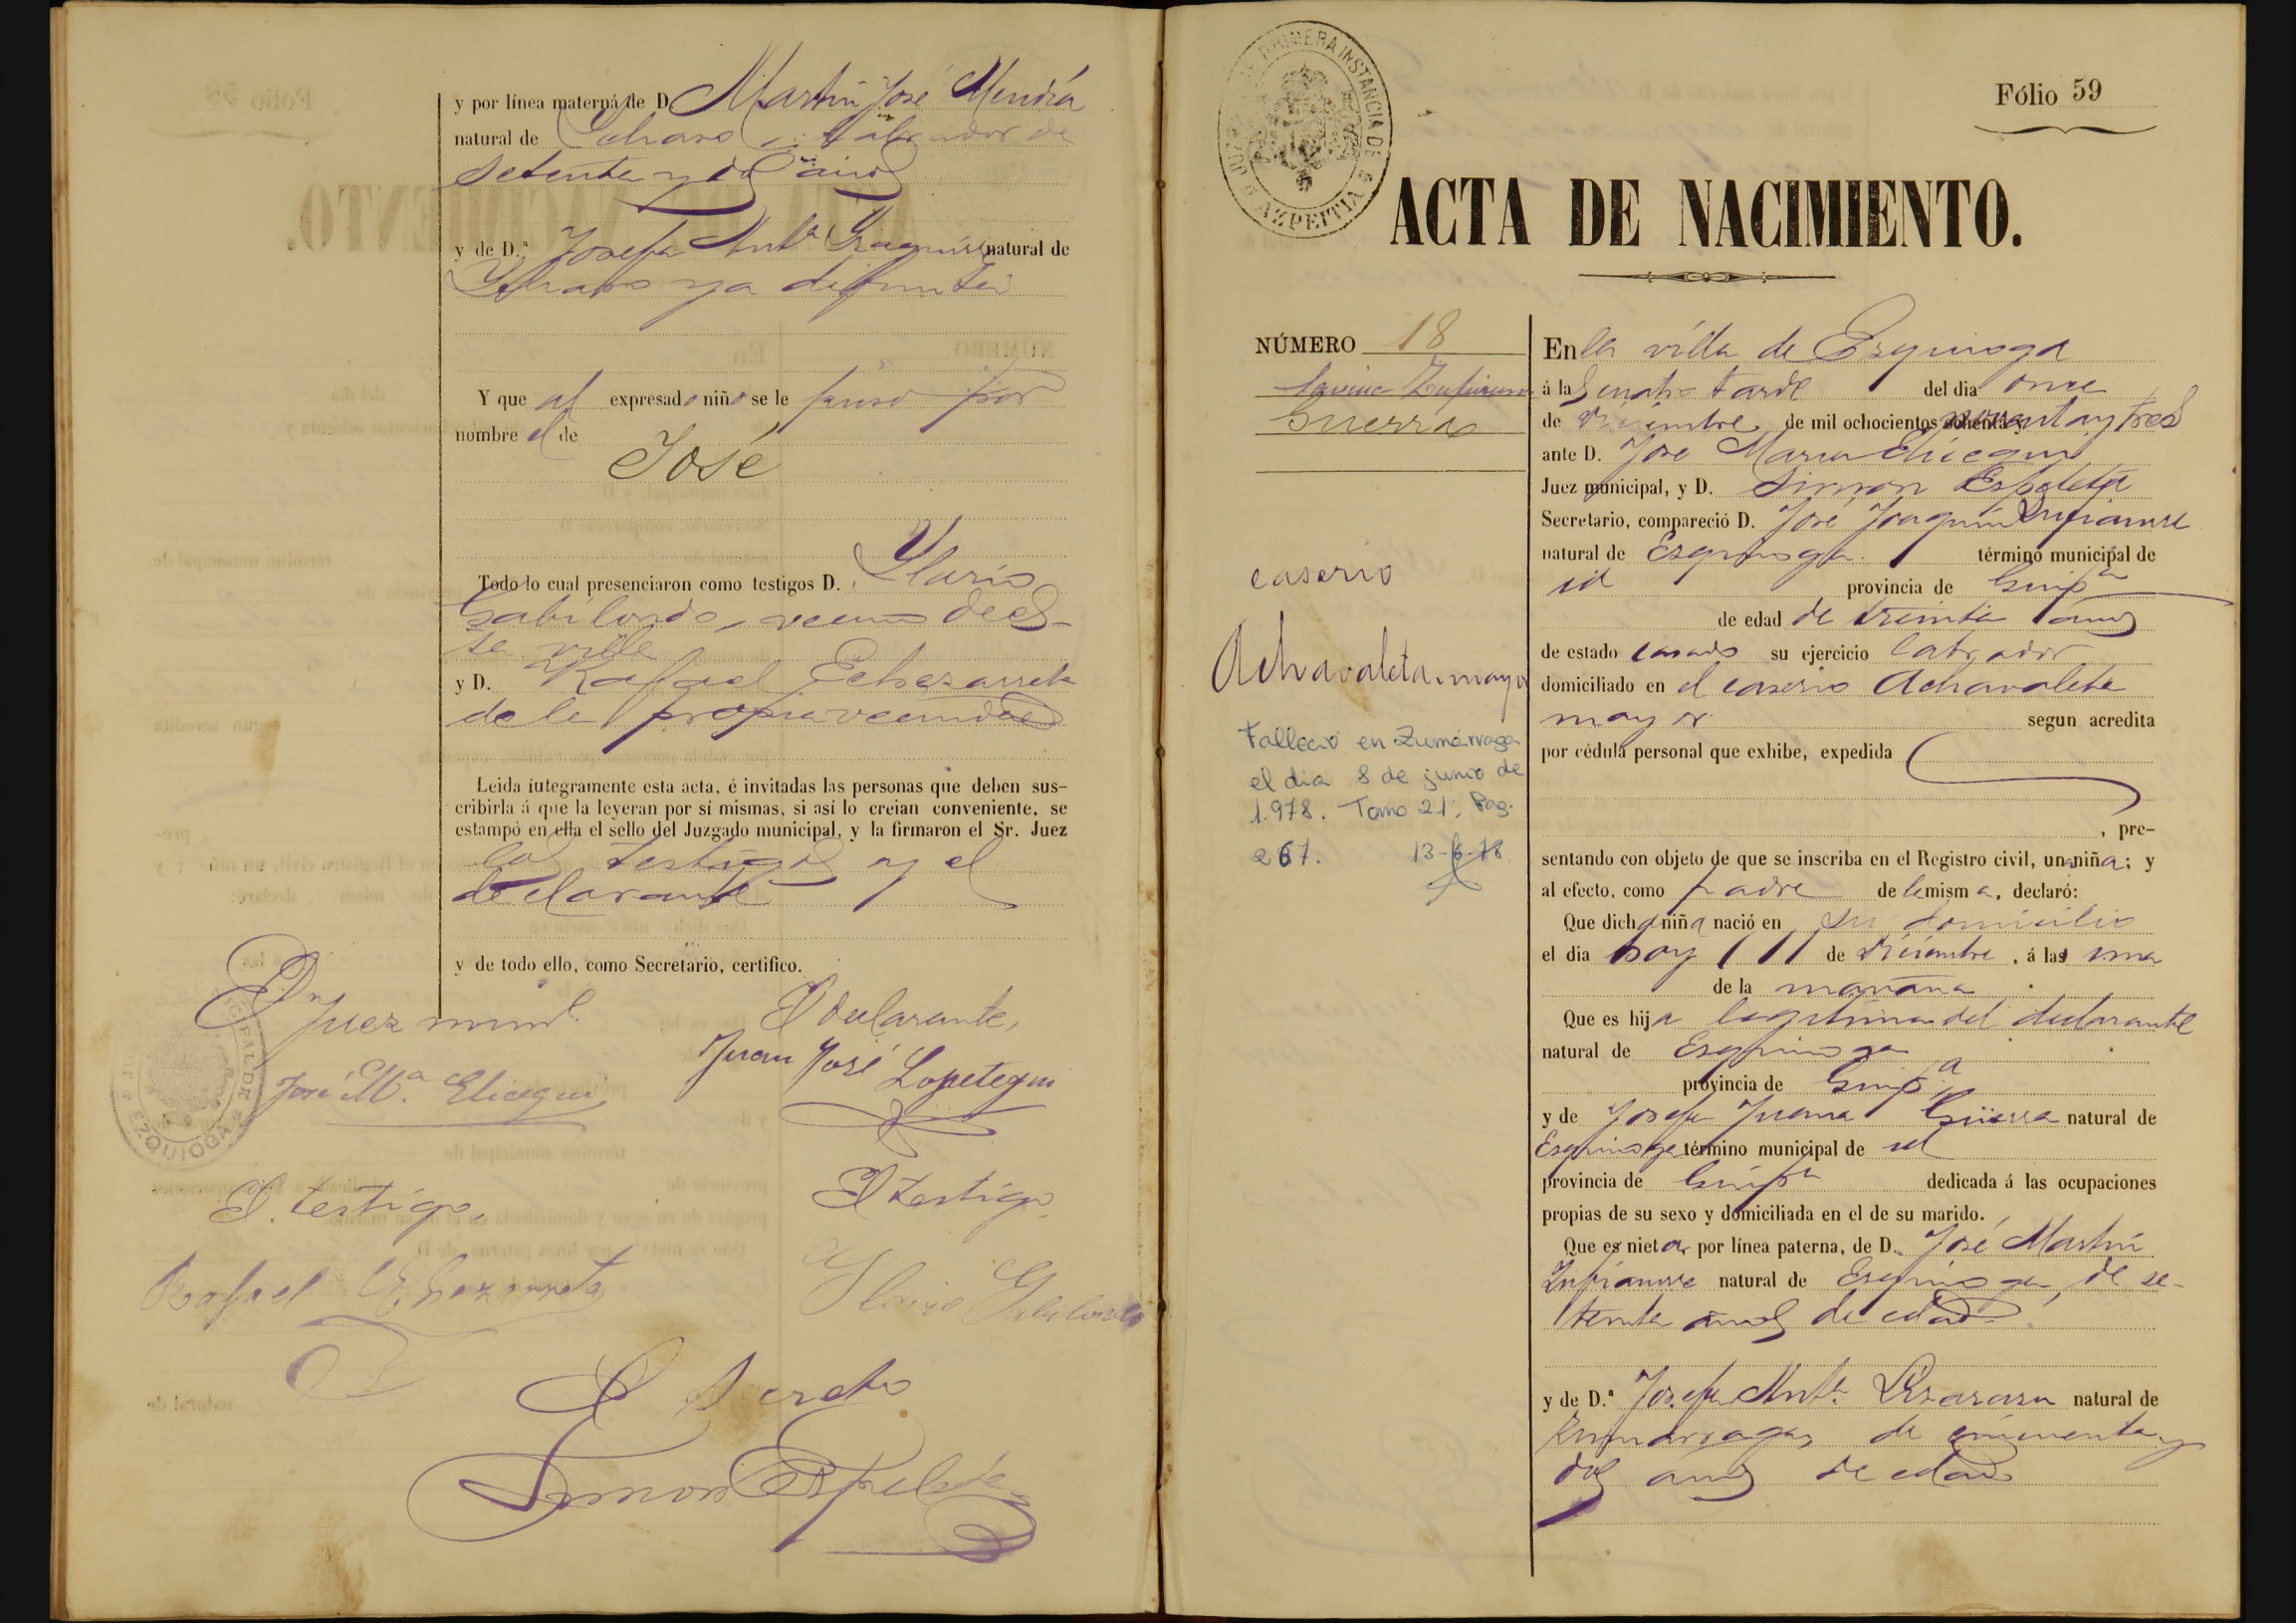 y por línea materna de D. Martin José Mendía
natural de labrador de
setenta y dos años
y de D.ª Josefa Ant.ª natural de
ya difunta
Y que al expresado niño se le puso por
nombre el de
José
Todo lo cual presenciaron como testigos D. Ylario
Gabilondo, vecino de es-
ta villa
y D. Rafael Echezarreta
de la propia vecindad
Leida íntegramente esta acta, é invitadas las personas que deben sus-
cribirla á que la leyeran por sí mismas, si así lo creian conveniente, se
estampó en ella el sello del Juzgado municipal, y la firmaron el Sr. Juez
los testigos y el
declarante
y de todo ello, como Secretario, certifico.
El Juez munl.
José M.ª Elicegui
El declarante,
Juan José Lopetegui
El testigo,
Rafael Echezarreta
El testigo
Ylario Gabilondo
El Secreto
Simon Espeleta
EZQUIOGA
PRIMERA INSTANCIA DE AZPEITIA
Fólio 59
ACTA DE NACIMIENTO.
NÚMERO 18
Guerra
caserio
Achavaleta mayor
Falleció en Zumárraga
el dia 8 de junio de
1.978. Tomo 21, Pag.
267. 13-6-78
En la villa de Ezquioga
á las cuatro tarde del dia once
de Diciembre de mil ochocientos noventa y tres
ante D. José Maria Elicegui
Juez municipal, y D. Simon Espeleta
Secretario, compareció D. José Joaquin Zufiaurre
natural de Ezquioga término municipal de
id provincia de Guip.ª
de edad de treinta años
de estado casado su ejercicio labrador
domiciliado en el caserio Achavaleta
mayor segun acredita
por cédula personal que exhibe, expedida
, pre-
sentando con objeto de que se inscriba en el Registro civil, una niña; y
al efecto, como padre de la misma, declaró:
Que dicha niña nació en su domicilio
el dia hoy 11 de Diciembre, á las una
de la mañana
Que es hija legitima del declarante
natural de Ezquioga
provincia de Guip.ª
y de Josefa Juana Guerra natural de
Ezquioga término municipal de id
provincia de Guip.ª dedicada á las ocupaciones
propias de su sexo y domiciliada en el de su marido.
Que es nieta por línea paterna, de D. José Martin
Zufiaurre natural de Ezquioga, de se-
tenta años de edad
y de D.ª Josefa Ant.ª Lizarazu natural de
Zumarraga, de cincuenta y
dos años de edad